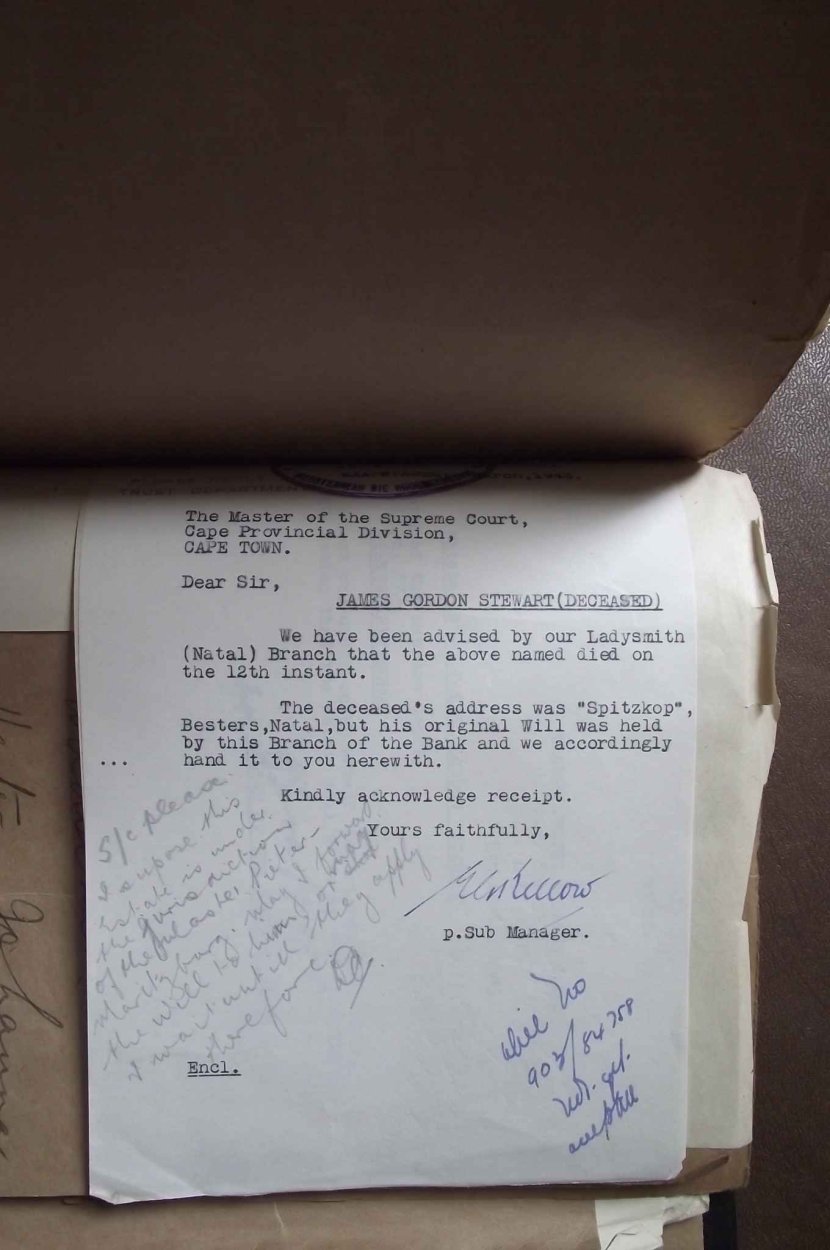 TRUST DEPARTMENT
The Master of the Supreme Court,
Cape Provincial Division,
CAPE TOWN.
Dear Sir,
JAMES GORDON STEWART(DECEASED)
We have been advised by our Ladysmith
(Natal) Branch that the above named died on
the 12th instant.
The deceased's address was "Spitzkop",
Besters,Natal,but his original Will was held
by this Branch of the Bank and we accordingly
... hand it to you herewith.
Kindly acknowledge receipt.
Yours faithfully,
p.Sub Manager.
S/c please
I suppose this
Estate is under
the jurisdiction
of the Master Pieter-
maritzburg. May I forward
the will to him, or shall
I wait until they apply
therefore.
Encl.
Will No
903/84788